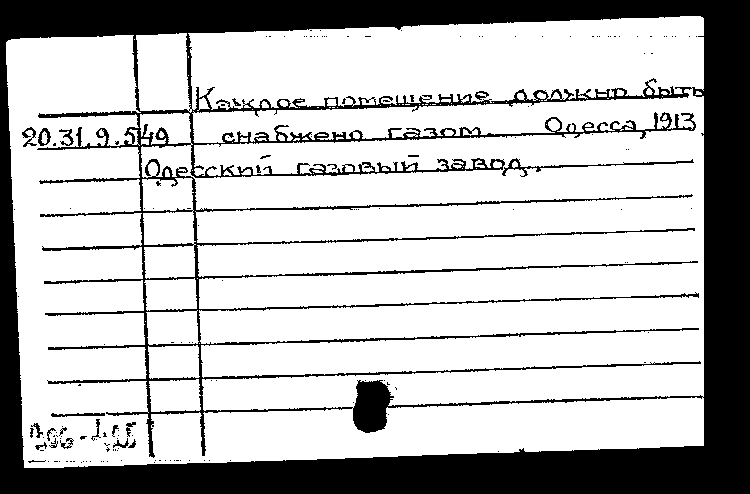 Каждое помещение должно быть
20.31.9.549 снабжено газом. Одесса, 1913
Одесский газовый завод.